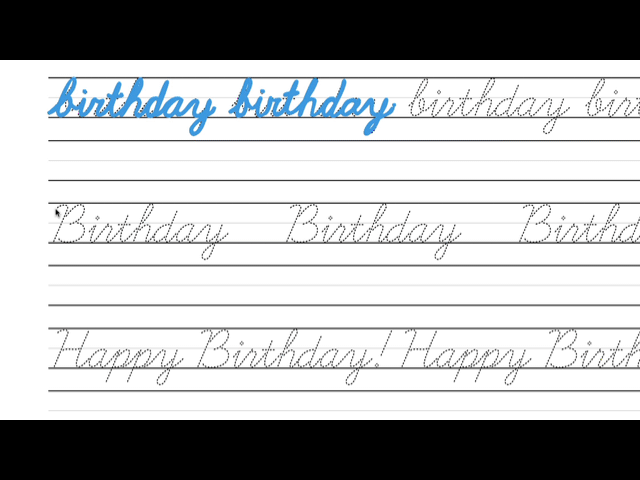 birthday birthday birthday birt
Birthday Birthday Birthd
Happy Birthday! Happy Birth